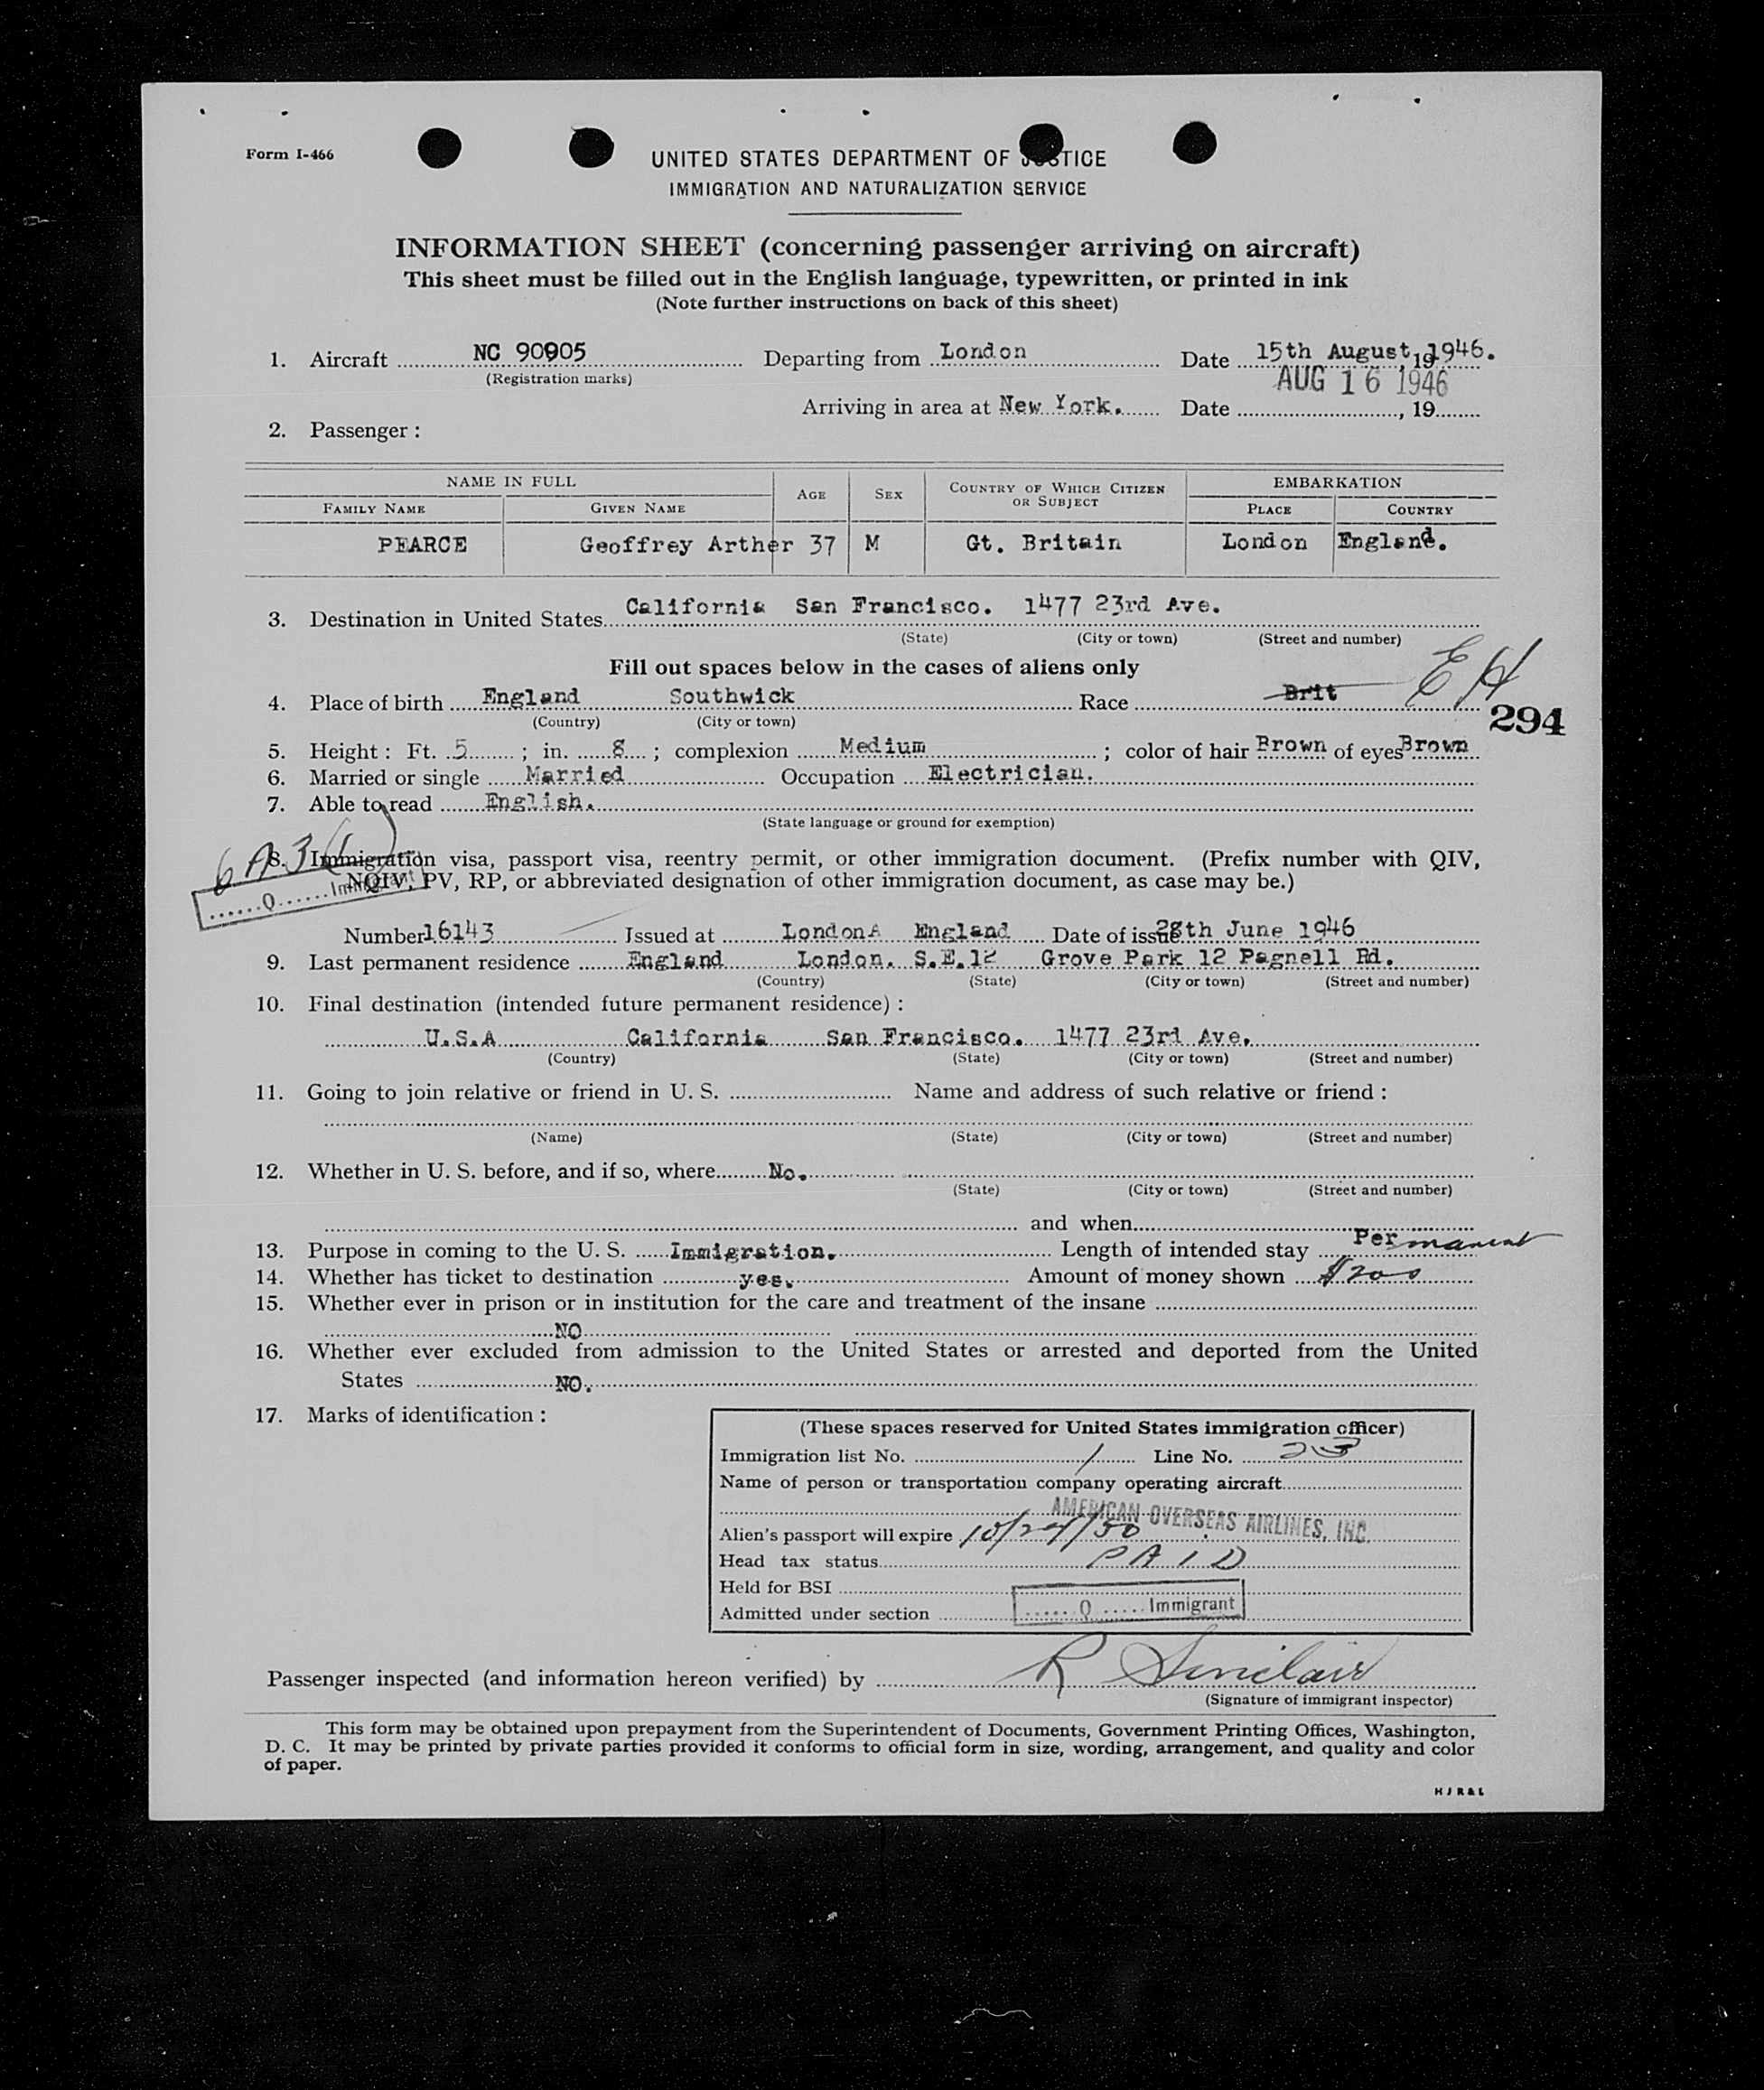 Form I-466
UNITED STATES DEPARTMENT OF JUSTICE
IMMIGRATION AND NATURALIZATION SERVICE
INFORMATION SHEET (concerning passenger arriving on aircraft)
This sheet must be filled out in the English language, typewritten, or printed in ink
(Note further instructions on back of this sheet)
1. Aircraft NC 90905 Departing from London Date 15th August, 19 1946.
(Registration marks)
AUG 16 1946
Arriving in area at New York. Date , 19
2. Passenger :
NAME IN FULL AGE SEX COUNTRY OF WHICH CITIZEN OR SUBJECT EMBARKATION
FAMILY NAME GIVEN NAME PLACE COUNTRY
PEARCE Geoffrey Arther 37 M Gt. Britain London England.
3. Destination in United States California San Francisco. 1477 23rd Ave.
(State) (City or town) (Street and number)
Fill out spaces below in the cases of aliens only
EH
4. Place of birth England Southwick Race Brit
(Country) (City or town)
294
5. Height : Ft. 5 ; in. 8 ; complexion Medium ; color of hair Brown of eyes Brown
6. Married or single Married Occupation Electrician.
7. Able to read English.
(State language or ground for exemption)
6A3(1)
8. Immigration visa, passport visa, reentry permit, or other immigration document. (Prefix number with QIV,
NQIV, PV, RP, or abbreviated designation of other immigration document, as case may be.)
Q Immigrant
Number 16143 Issued at London England Date of issue 28th June 1946
9. Last permanent residence England London. S.E.12 Grove Park 12 Pagnell Rd.
(Country) (State) (City or town) (Street and number)
10. Final destination (intended future permanent residence) :
U.S.A California San Francisco. 1477 23rd Ave.
(Country) (State) (City or town) (Street and number)
11. Going to join relative or friend in U. S. Name and address of such relative or friend :
(Name) (State) (City or town) (Street and number)
12. Whether in U. S. before, and if so, where No.
(State) (City or town) (Street and number)
and when
13. Purpose in coming to the U. S. Immigration. Length of intended stay Permanent
14. Whether has ticket to destination yes. Amount of money shown $200
15. Whether ever in prison or in institution for the care and treatment of the insane
NO
16. Whether ever excluded from admission to the United States or arrested and deported from the United
States NO.
17. Marks of identification :
(These spaces reserved for United States immigration officer)
Immigration list No. 1 Line No.
Name of person or transportation company operating aircraft
AMERICAN OVERSEAS AIRLINES, INC.
Alien's passport will expire 10/24/50
Head tax status PAID
Held for BSI
Admitted under section Q Immigrant
Passenger inspected (and information hereon verified) by R Sinclair
(Signature of immigrant inspector)
This form may be obtained upon prepayment from the Superintendent of Documents, Government Printing Offices, Washington,
D. C. It may be printed by private parties provided it conforms to official form in size, wording, arrangement, and quality and color
of paper.
H J R & L